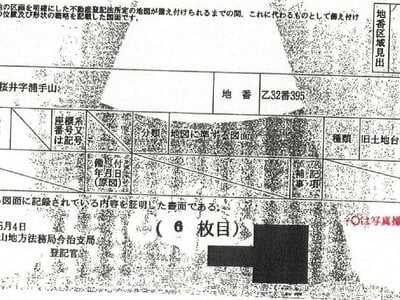 の区画を明確にした不動産登記法所定の地図が備え付けられるまでの間、これに代わるものとして備え付け
の位置及び形状の概略を記載した図面です。
地番区域見出
桜井字浦手山
地番
乙32番395
座標系番号又は記号
分類
地図に準ずる図面
種類
旧土地台
備付年月日(原図)
補記事項
図面に記録されている内容を証明した書面である。
5月4日
山地方法務局今治支局
登記官
(6枚目)
○は写真撮